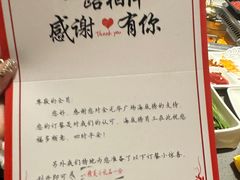 一路相伴
感谢 有你
Thank you
尊敬的会员:
您好,感谢您对金光华广场海底捞的支持
您的订餐是对我们的认可,海底捞员工在此祝您
福多顺意,四时平安!
另外我们特地为您准备了以下订餐小惊喜,